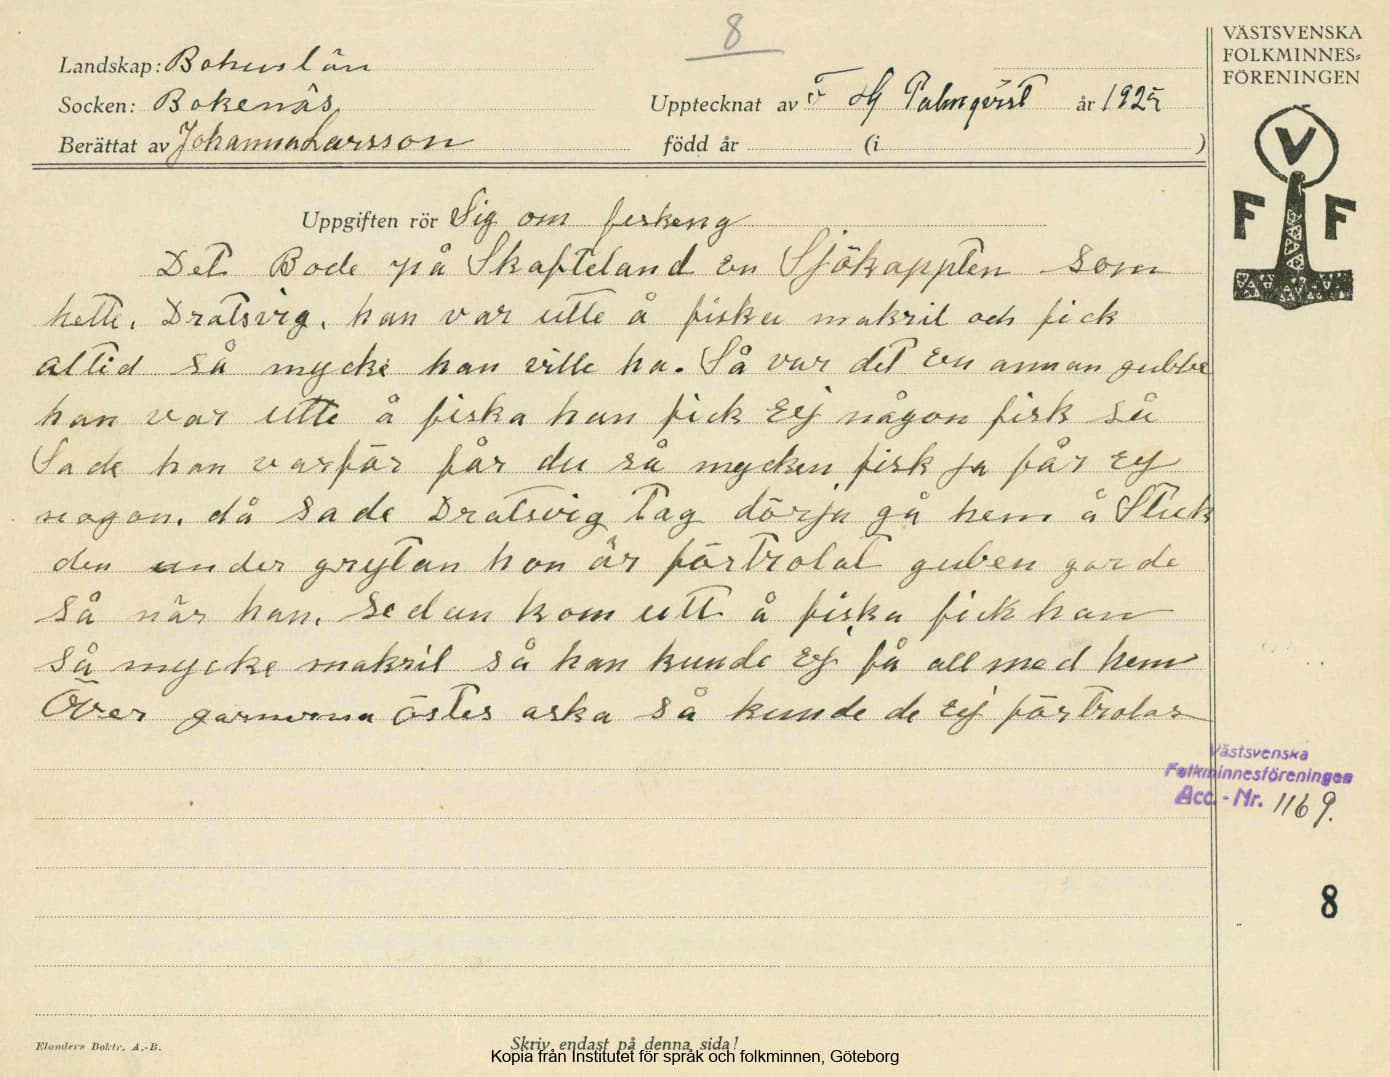 8
Landskap: Bohuslän
Socken: Bokenäs
Upptecknat av F Hj Palmqvist år 1925
Berättat av Johanna Larsson född år (i )
VÄSTSVENSKA
FOLKMINNES=
FÖRENINGEN
V
F F
Uppgiften rör Sig om feskeng
Det Bode på Skafteland en Sjökappten som
hette, Dratsvig, han var utte å fiska makril och fick
altid så mycke han ville ha. Så var det en annan gubbe
han var utte å fiska han fick Eij någon fisk så
Sade han varför får du så mycken fisk ja får Ey
nogon, då sade Dratsvig Tag dörja gå hem å Stick
den under grytan hon är förtrolat guben gorde
så när han, sedan kom utt å fiska fick han
så mycke makril så han kunde Eij få all med hem
Över garnerna östes aska så kunde de Eij förtrolas
Västsvenska
Folkminnesföreningen
Acc.-Nr. 1169.
8
Elanders Boktr. A.-B.
Skriv endast på denna sida!
Kopia från Institutet för språk och folkminnen, Göteborg